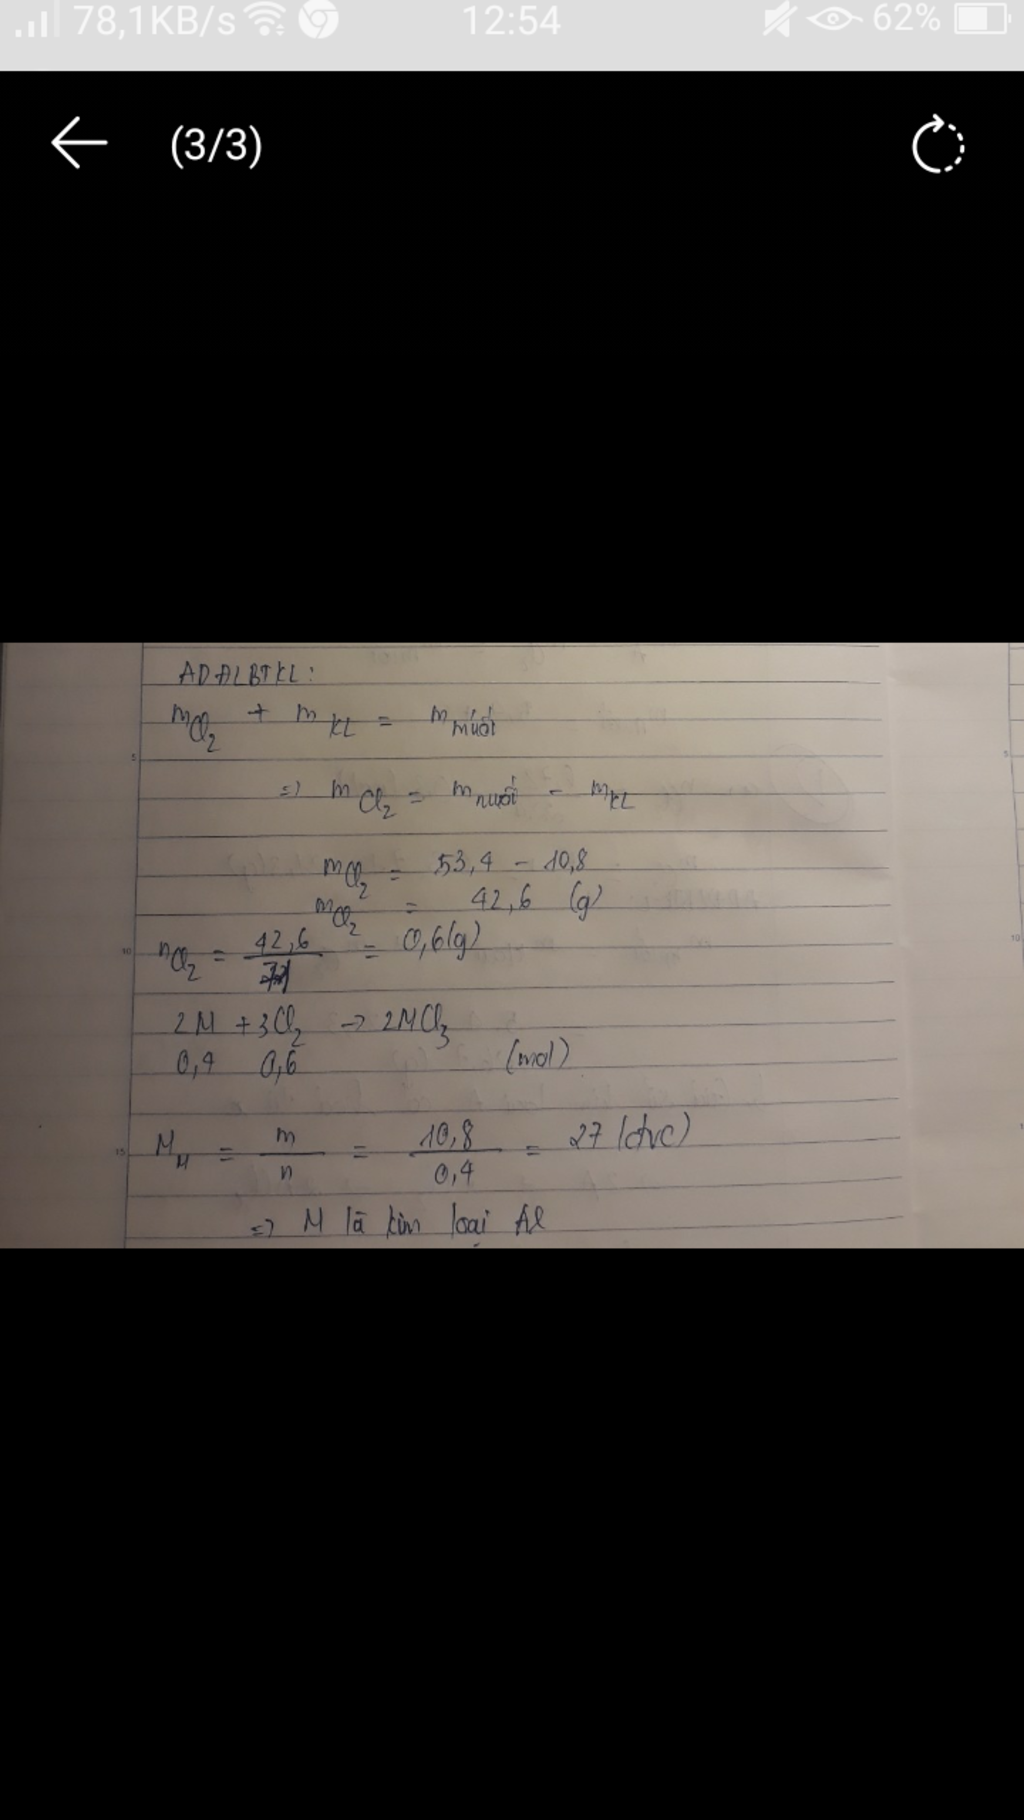 78,1KB/s 12:54 62%
(3/3)
ADĐLBTKL:
mCl2 + mKL = mmuối
=> mCl2 = mmuối - mKL
mCl2 = 53,4 - 10,8
mCl2 = 42,6 (g)
nCl2 = 42,6/71 = 0,6(g)
2M + 3Cl2 -> 2MCl3
0,4 0,6 (mol)
MM = m/n = 10,8/0,4 = 27 (đvc)
=> M là kim loại Al